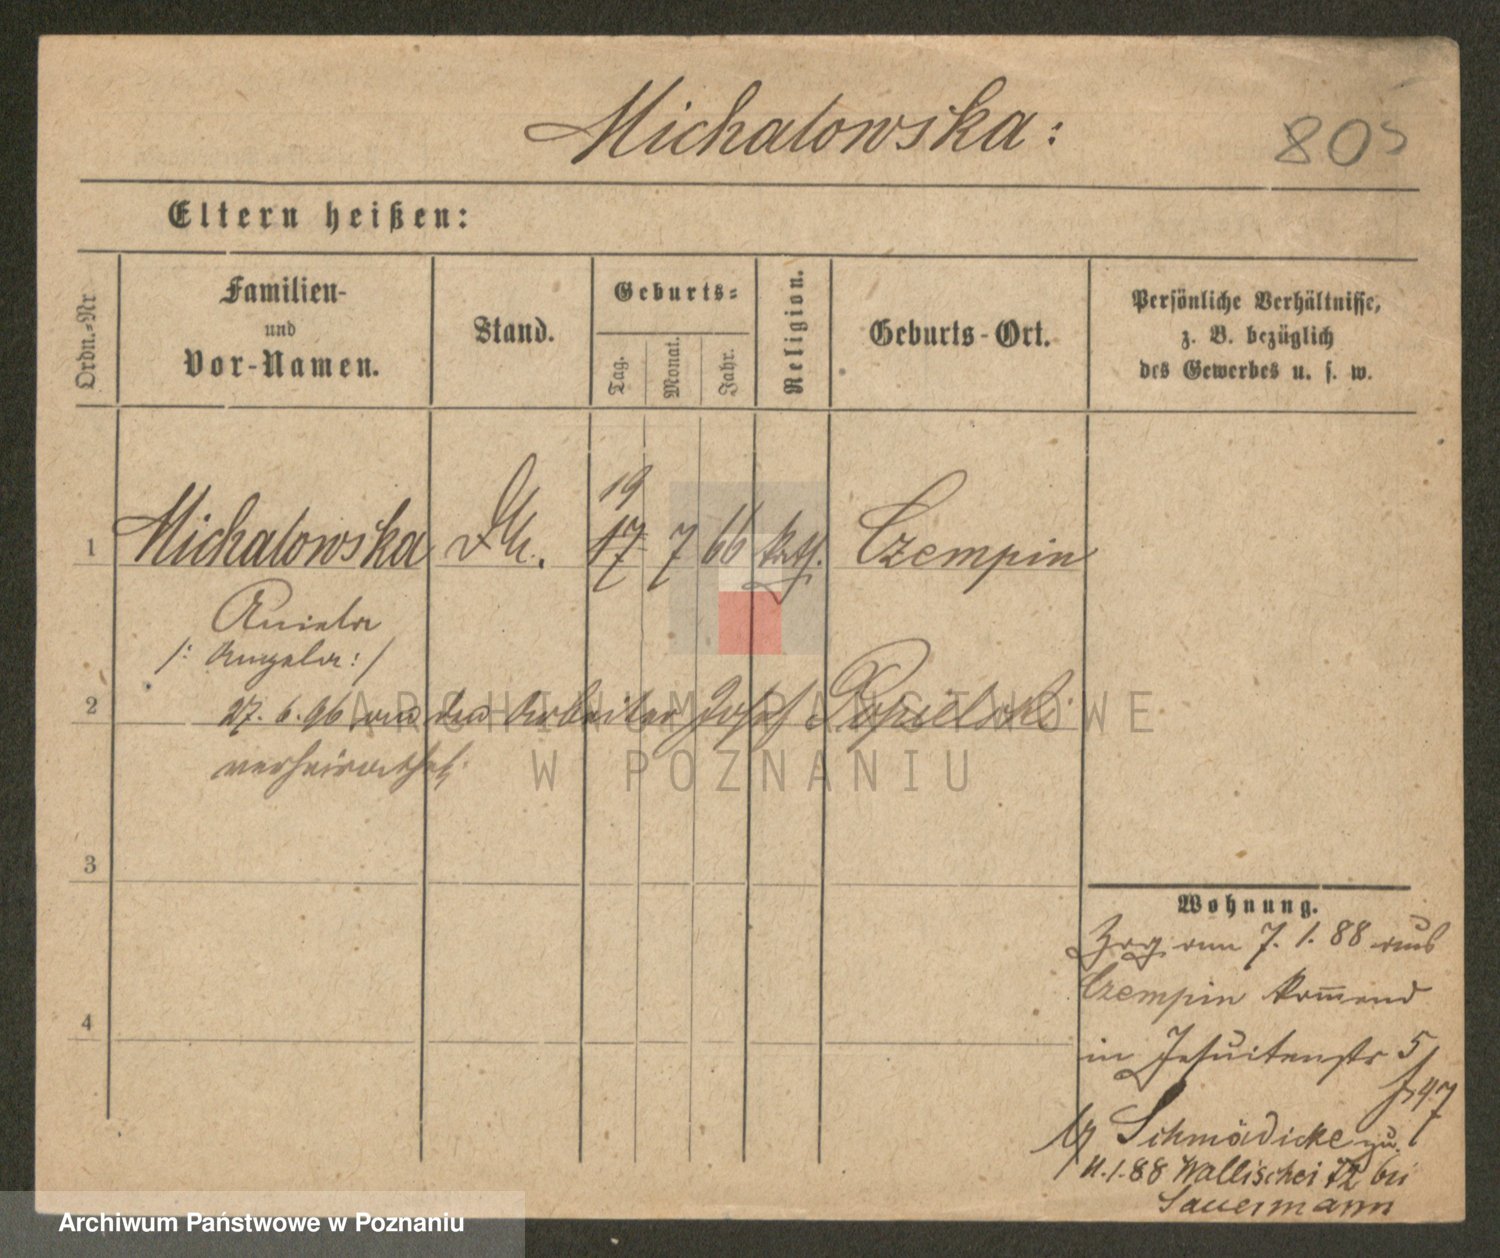 Michalowska:
805
Eltern heißen:
Ordn.-Nr
Familien-
und
Vor-Namen.
Stand.
Geburts-
Tag.
Monat.
Jahr.
Religion.
Geburts-Ort.
Persönliche Verhältnisse,
z. B. bezüglich
des Gewerbes u. s. w.
19
1 Michalowska 17 7 66 kath. Czempin
Aniela
/: Angela :/
2 27. 6. 96 mit dem Arbeiter Josef Popielski
verheirathet.
3
4
Wohnung.
Zog am 7. 1. 88 aus
Czempin kommend
in Jesuitenstr 5
Schmädicke zu.
11.1.88 Wallischei 72 bei
Sauermann
ARCHIWUM PAŃSTWOWE
W POZNANIU
Archiwum Państwowe w Poznaniu